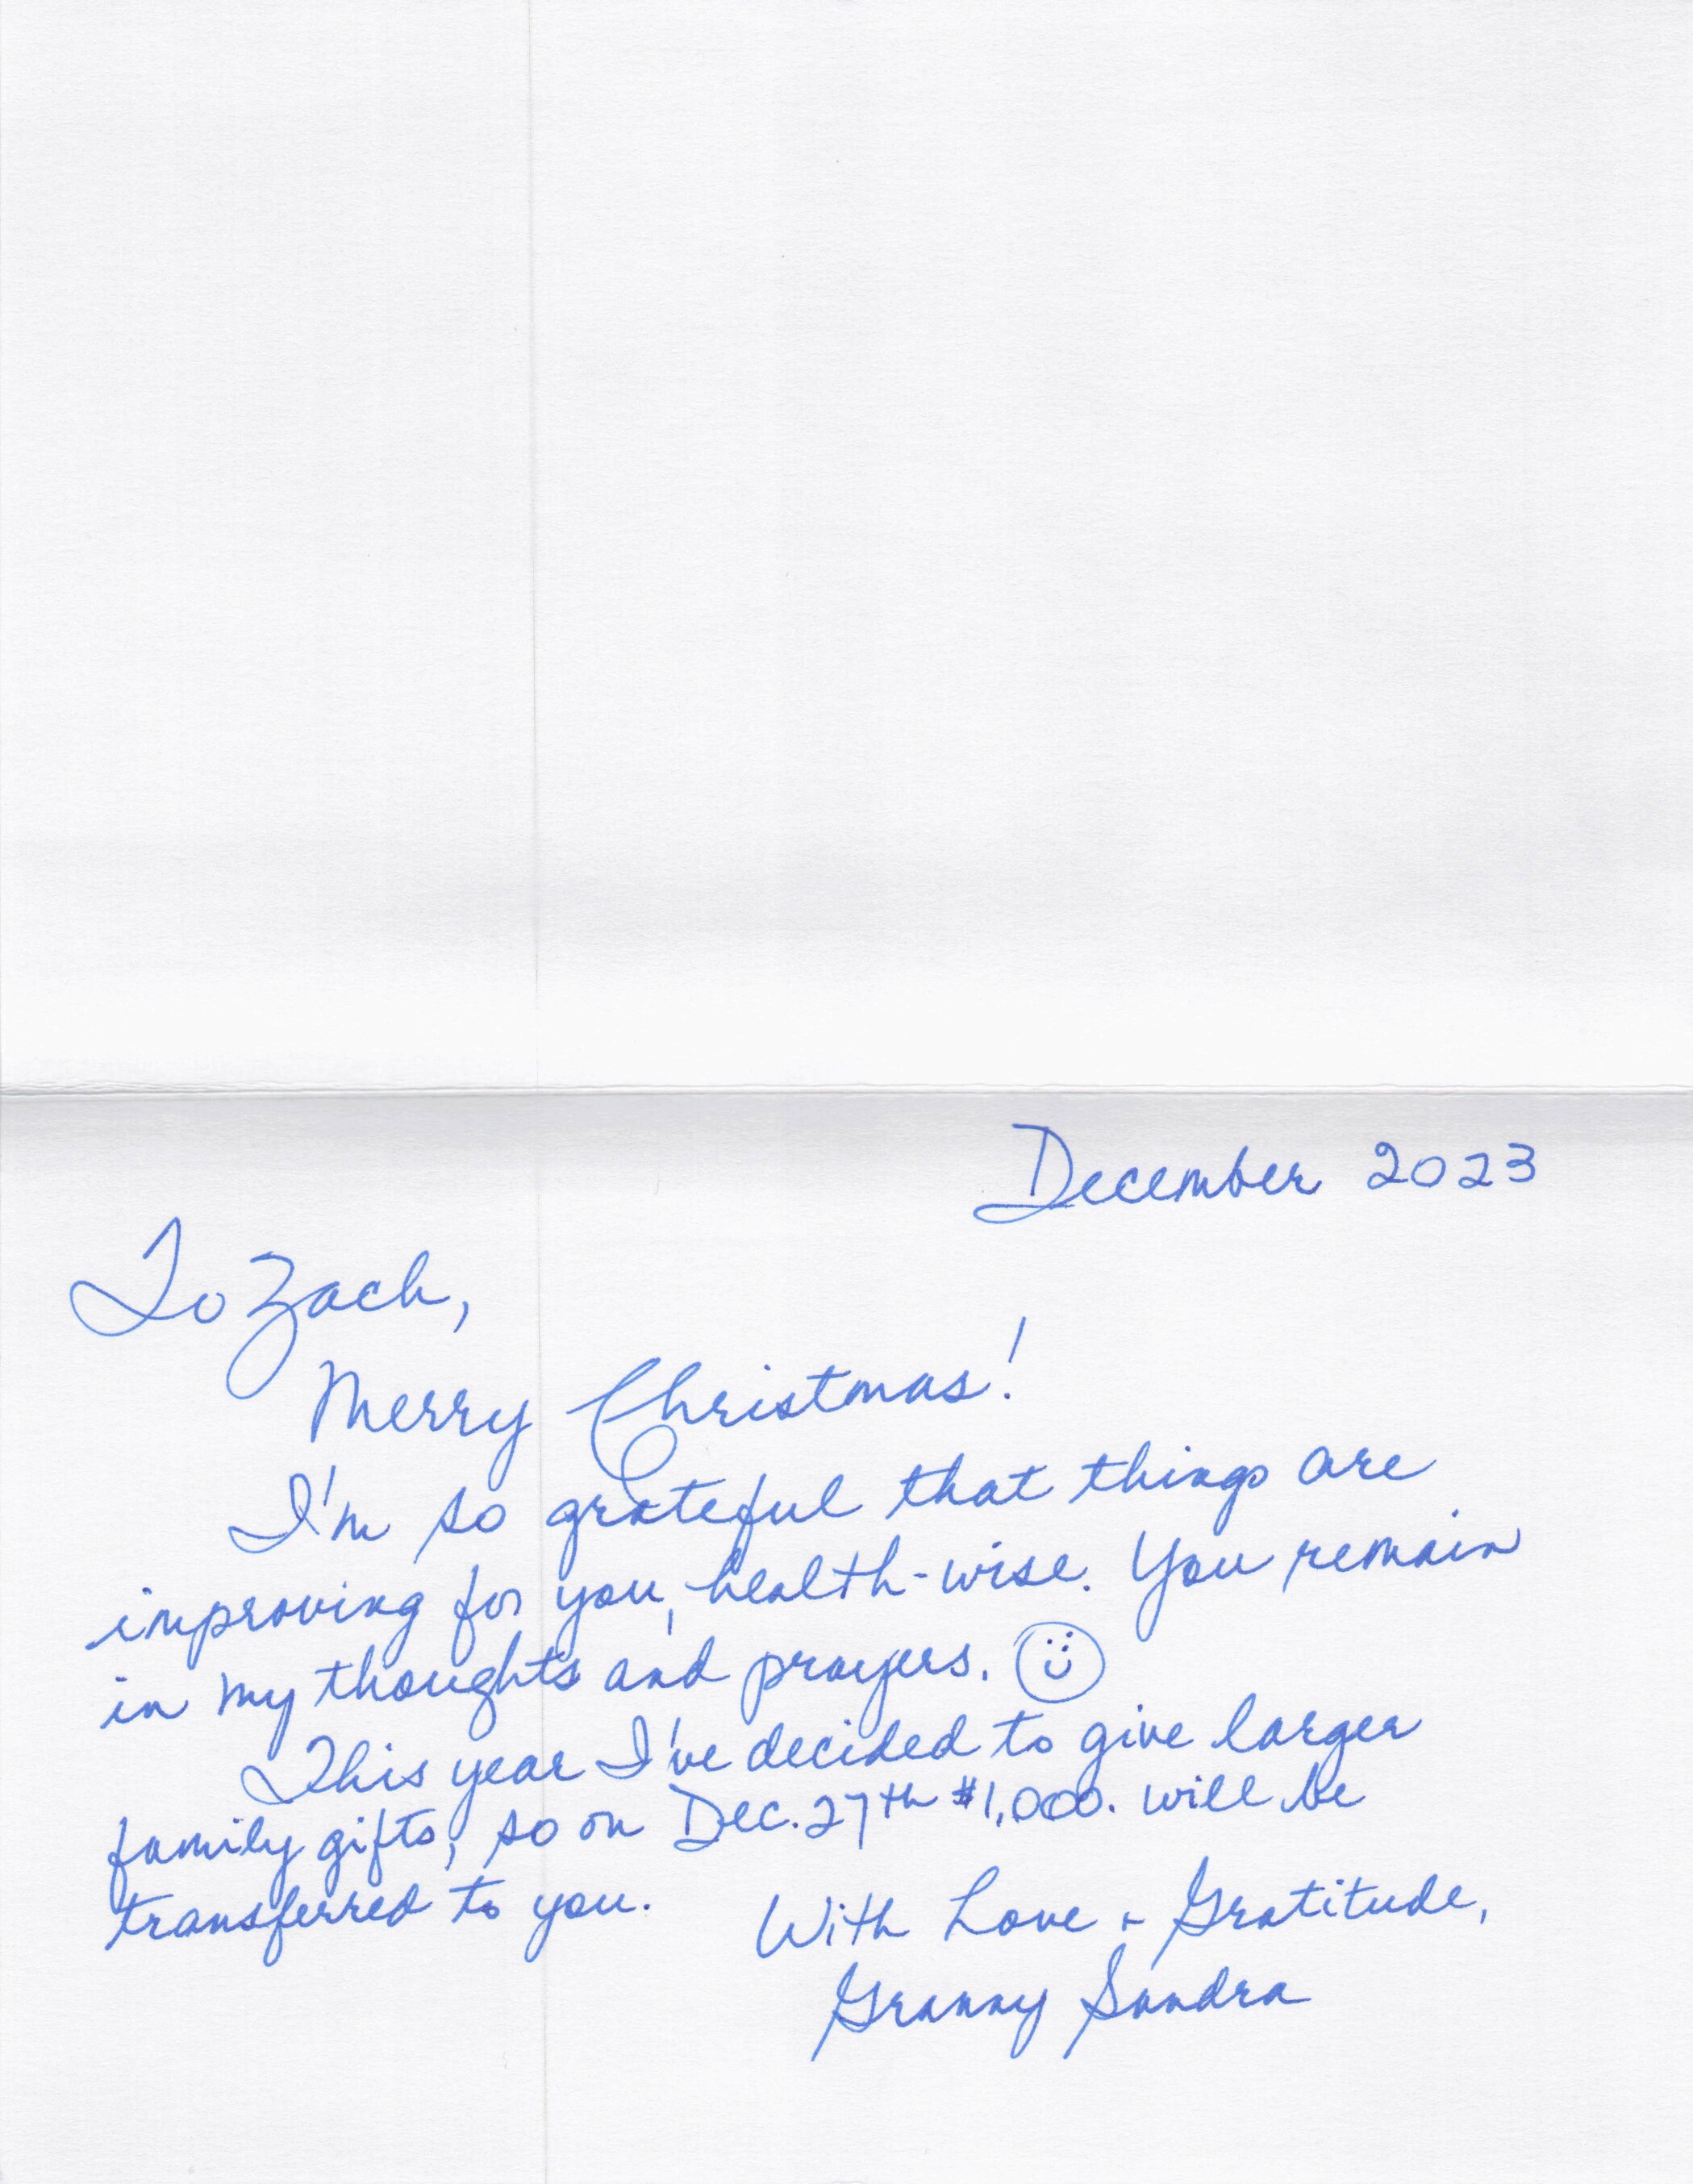 December 2023
To Zach,
Merry Christmas!
I'm so grateful that things are
improving for you, health-wise. You remain
in my thoughts and prayers.
This year I've decided to give larger
family gifts, so on Dec. 27th $1,000. will be
transferred to you.
With Love + Gratitude,
Granny Sandra